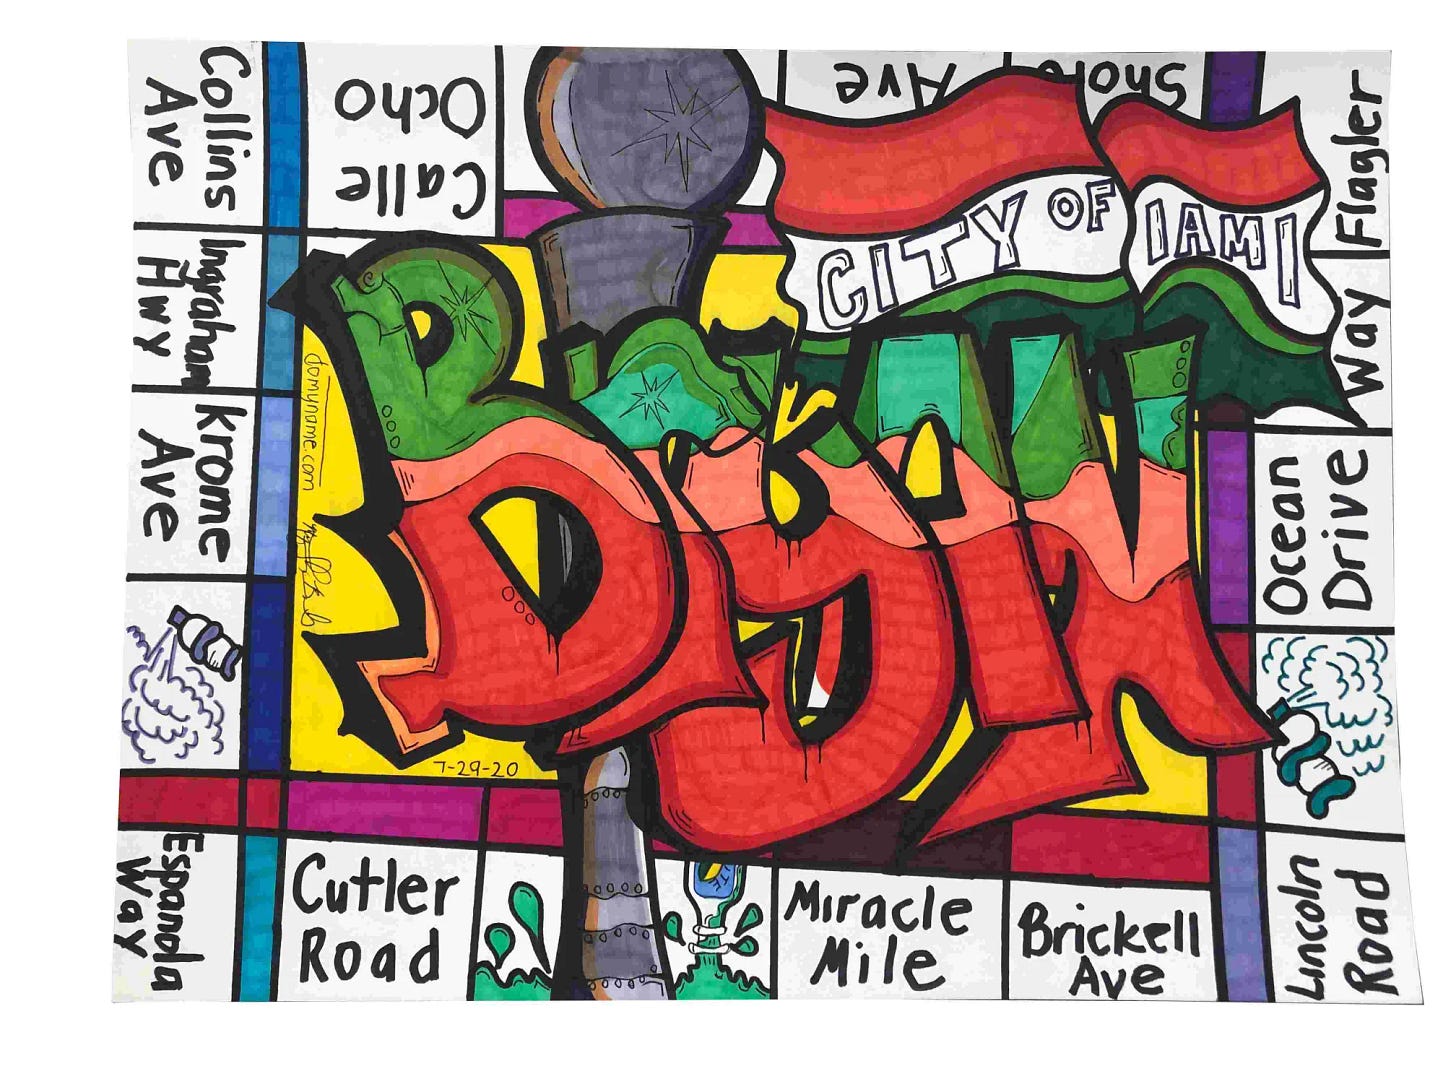 Collins
Ave
Calle
Ocho
Ave
Shore
CITY OF
IAMI
Flagler
Way
Ingraham
Hwy
Krome
Ave
domyname.com
Ocean
Drive
7-29-20
Espanola
Way
Cutler
Road
Miracle
Mile
Brickell
Ave
Lincoln
Road